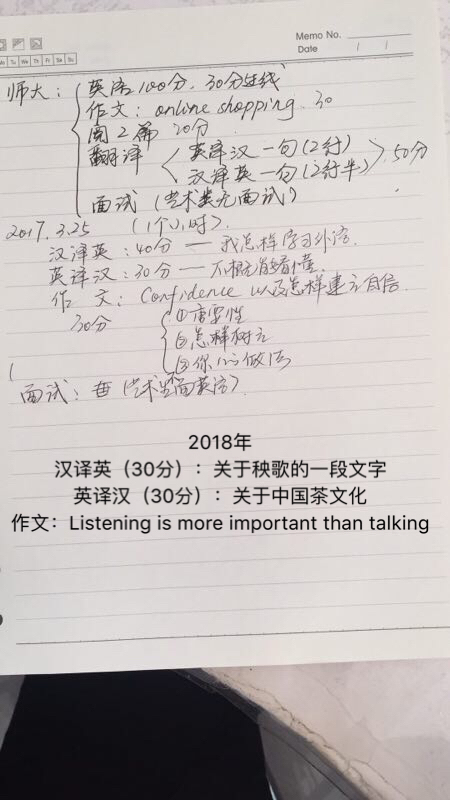 Memo No.
Mo Tu We Th Fr Sa Su
Date / /
师大: 英语100分, 30分过线
作文: online shopping. 30
阅2篇 20分
翻译 英译汉一句(2行) 50分
汉译英一句(2行半)
面试 (艺术类无面试)
2017.3.25 (1个小时)
汉译英: 40分 — 我怎样学习外语.
英译汉: 30分 —
作 文: Confidence 以及怎样建立自信.
30分 ①重要性
②怎样树立
③你的做法
面试: (艺术生面英语)
2018年
汉译英（30分）：关于秧歌的一段文字
英译汉（30分）：关于中国茶文化
作文：Listening is more important than talking